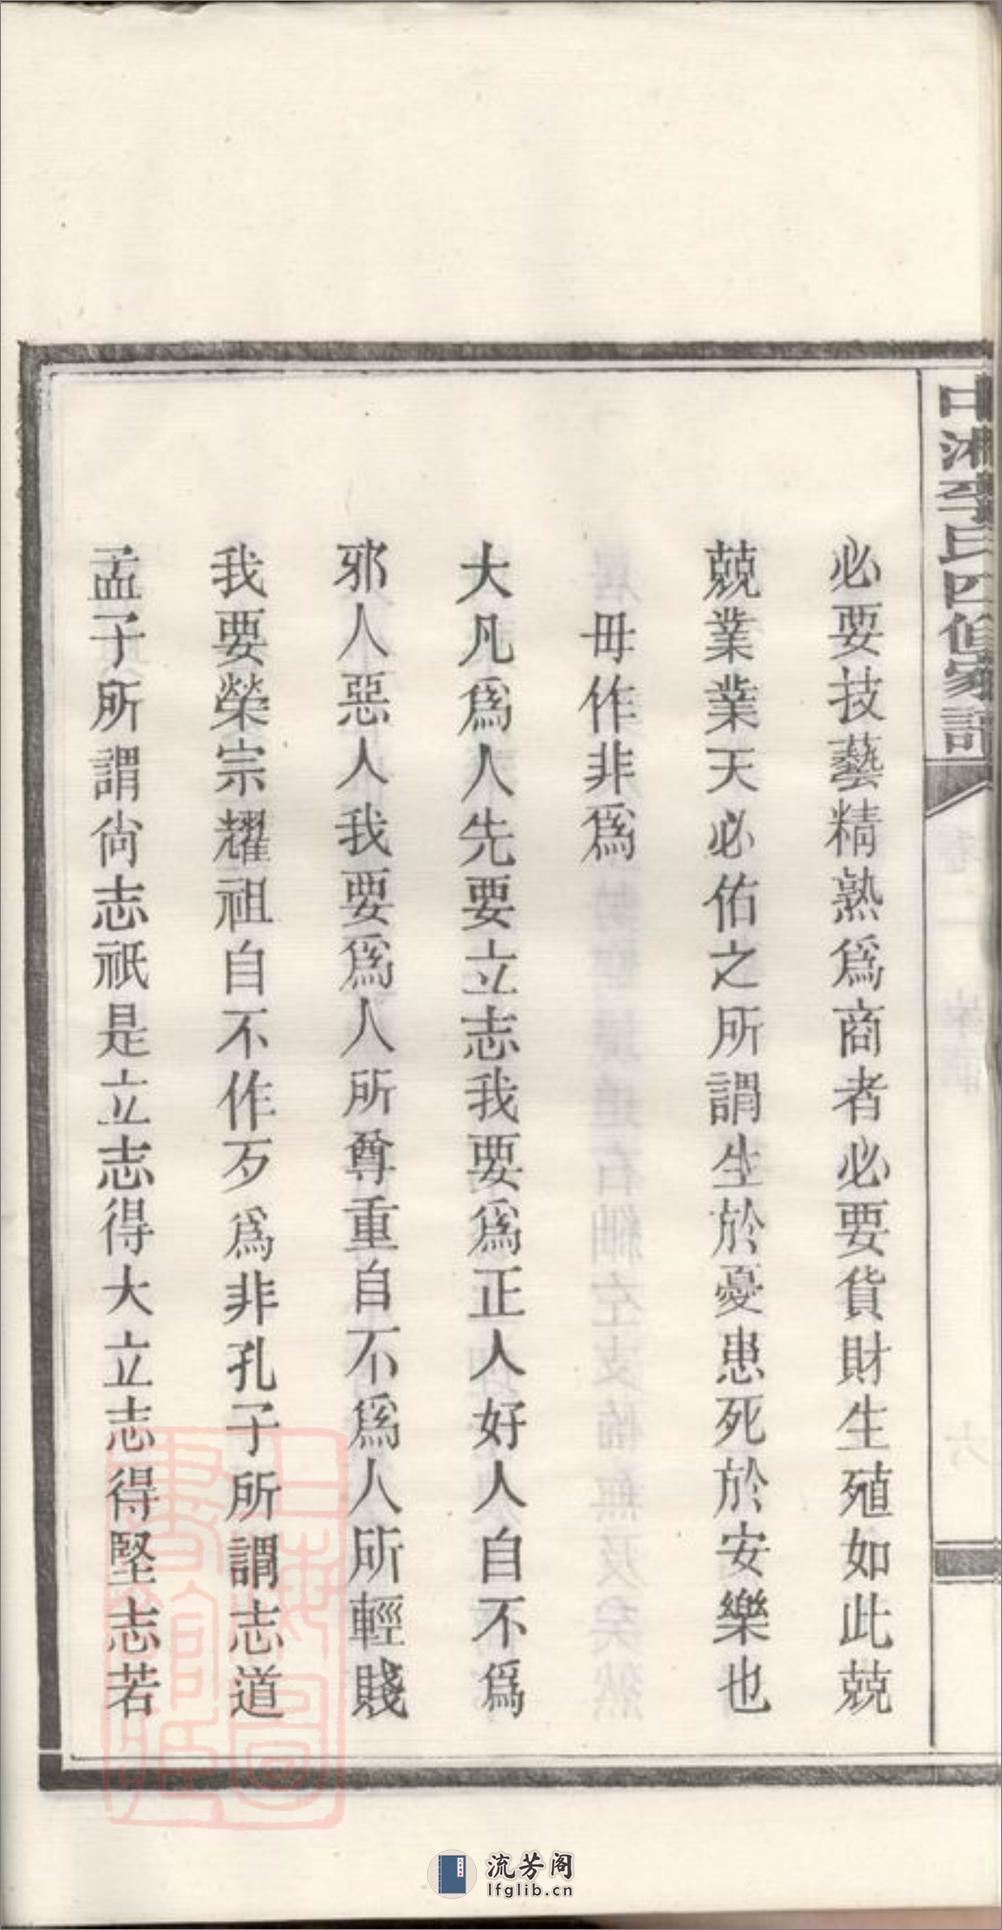 中湘李氏四修家譜
必要技藝精熟爲商者必要貨財生殖如此兢
兢業業天必佑之所謂生於憂患死於安樂也
毋作非爲
大凡爲人先要立志我要爲正人好人自不爲
邪人惡人我要爲人所尊重自不爲人所輕賤
我要榮宗耀祖自不作歹爲非孔子所謂志道
孟子所謂尙志祇是立志得大立志得堅志若
上海圖書館藏
流芳阁
lfglib.cn